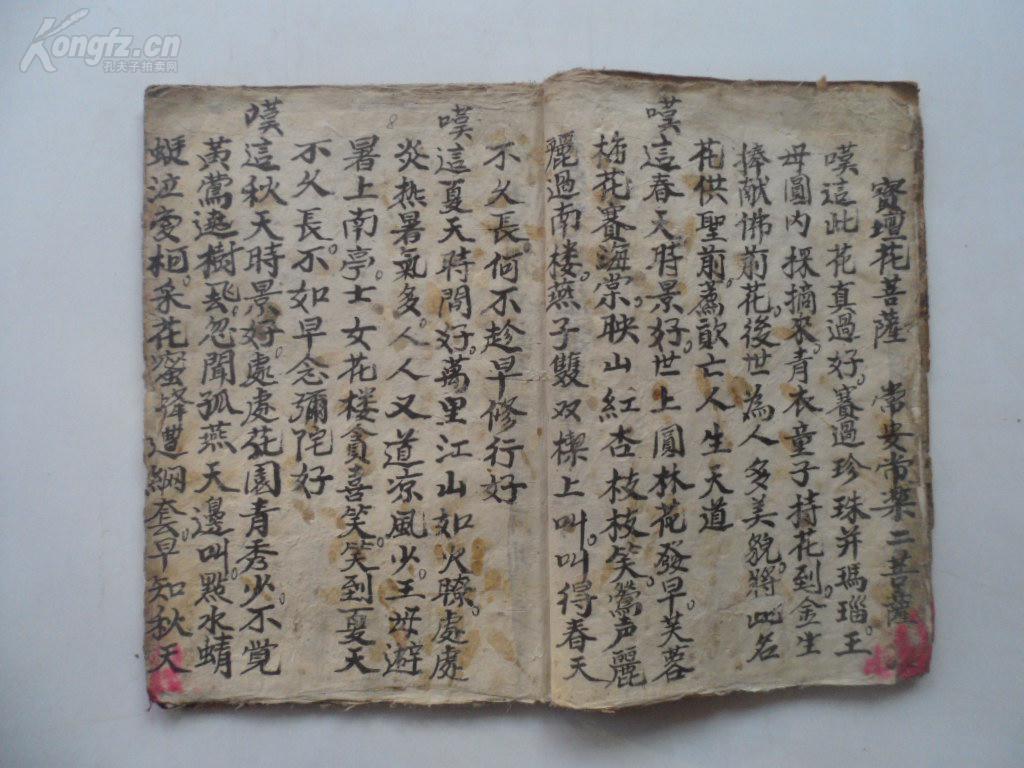 寳壇花菩薩 常安常樂二菩薩
嘆這此花真過好。賽過珍珠并瑪瑙。王
母園内採摘來。青衣童子持花到。金生
捧献佛前。花後世為人多美貌將此名
花供聖前。薦歆亡人生天道
嘆這春天時景好。世上園林花發早。芙蓉
梅花賽海棠。映山紅杏枝枝笑。鶯声麗
麗過南楼。燕子雙双樑上叫。叫得春天
不久長。何不趁早修行好
嘆這夏天時閙好。萬里江山如火燎。處處
炎热暑氣多。人人又道凉風少。王母避
暑上南亭。士女花楼貪喜笑。笑到夏天
不久長。不如早念彌陀好
嘆這秋天時景好。處處花園青秀少。不覚
黄鶯遶樹飛。忽聞孤燕天邊叫。點水蜻
蜓泣愛柯。采花蜜蜂遭綱套。早知秋天
8
Kongfz.cn
孔夫子拍卖网